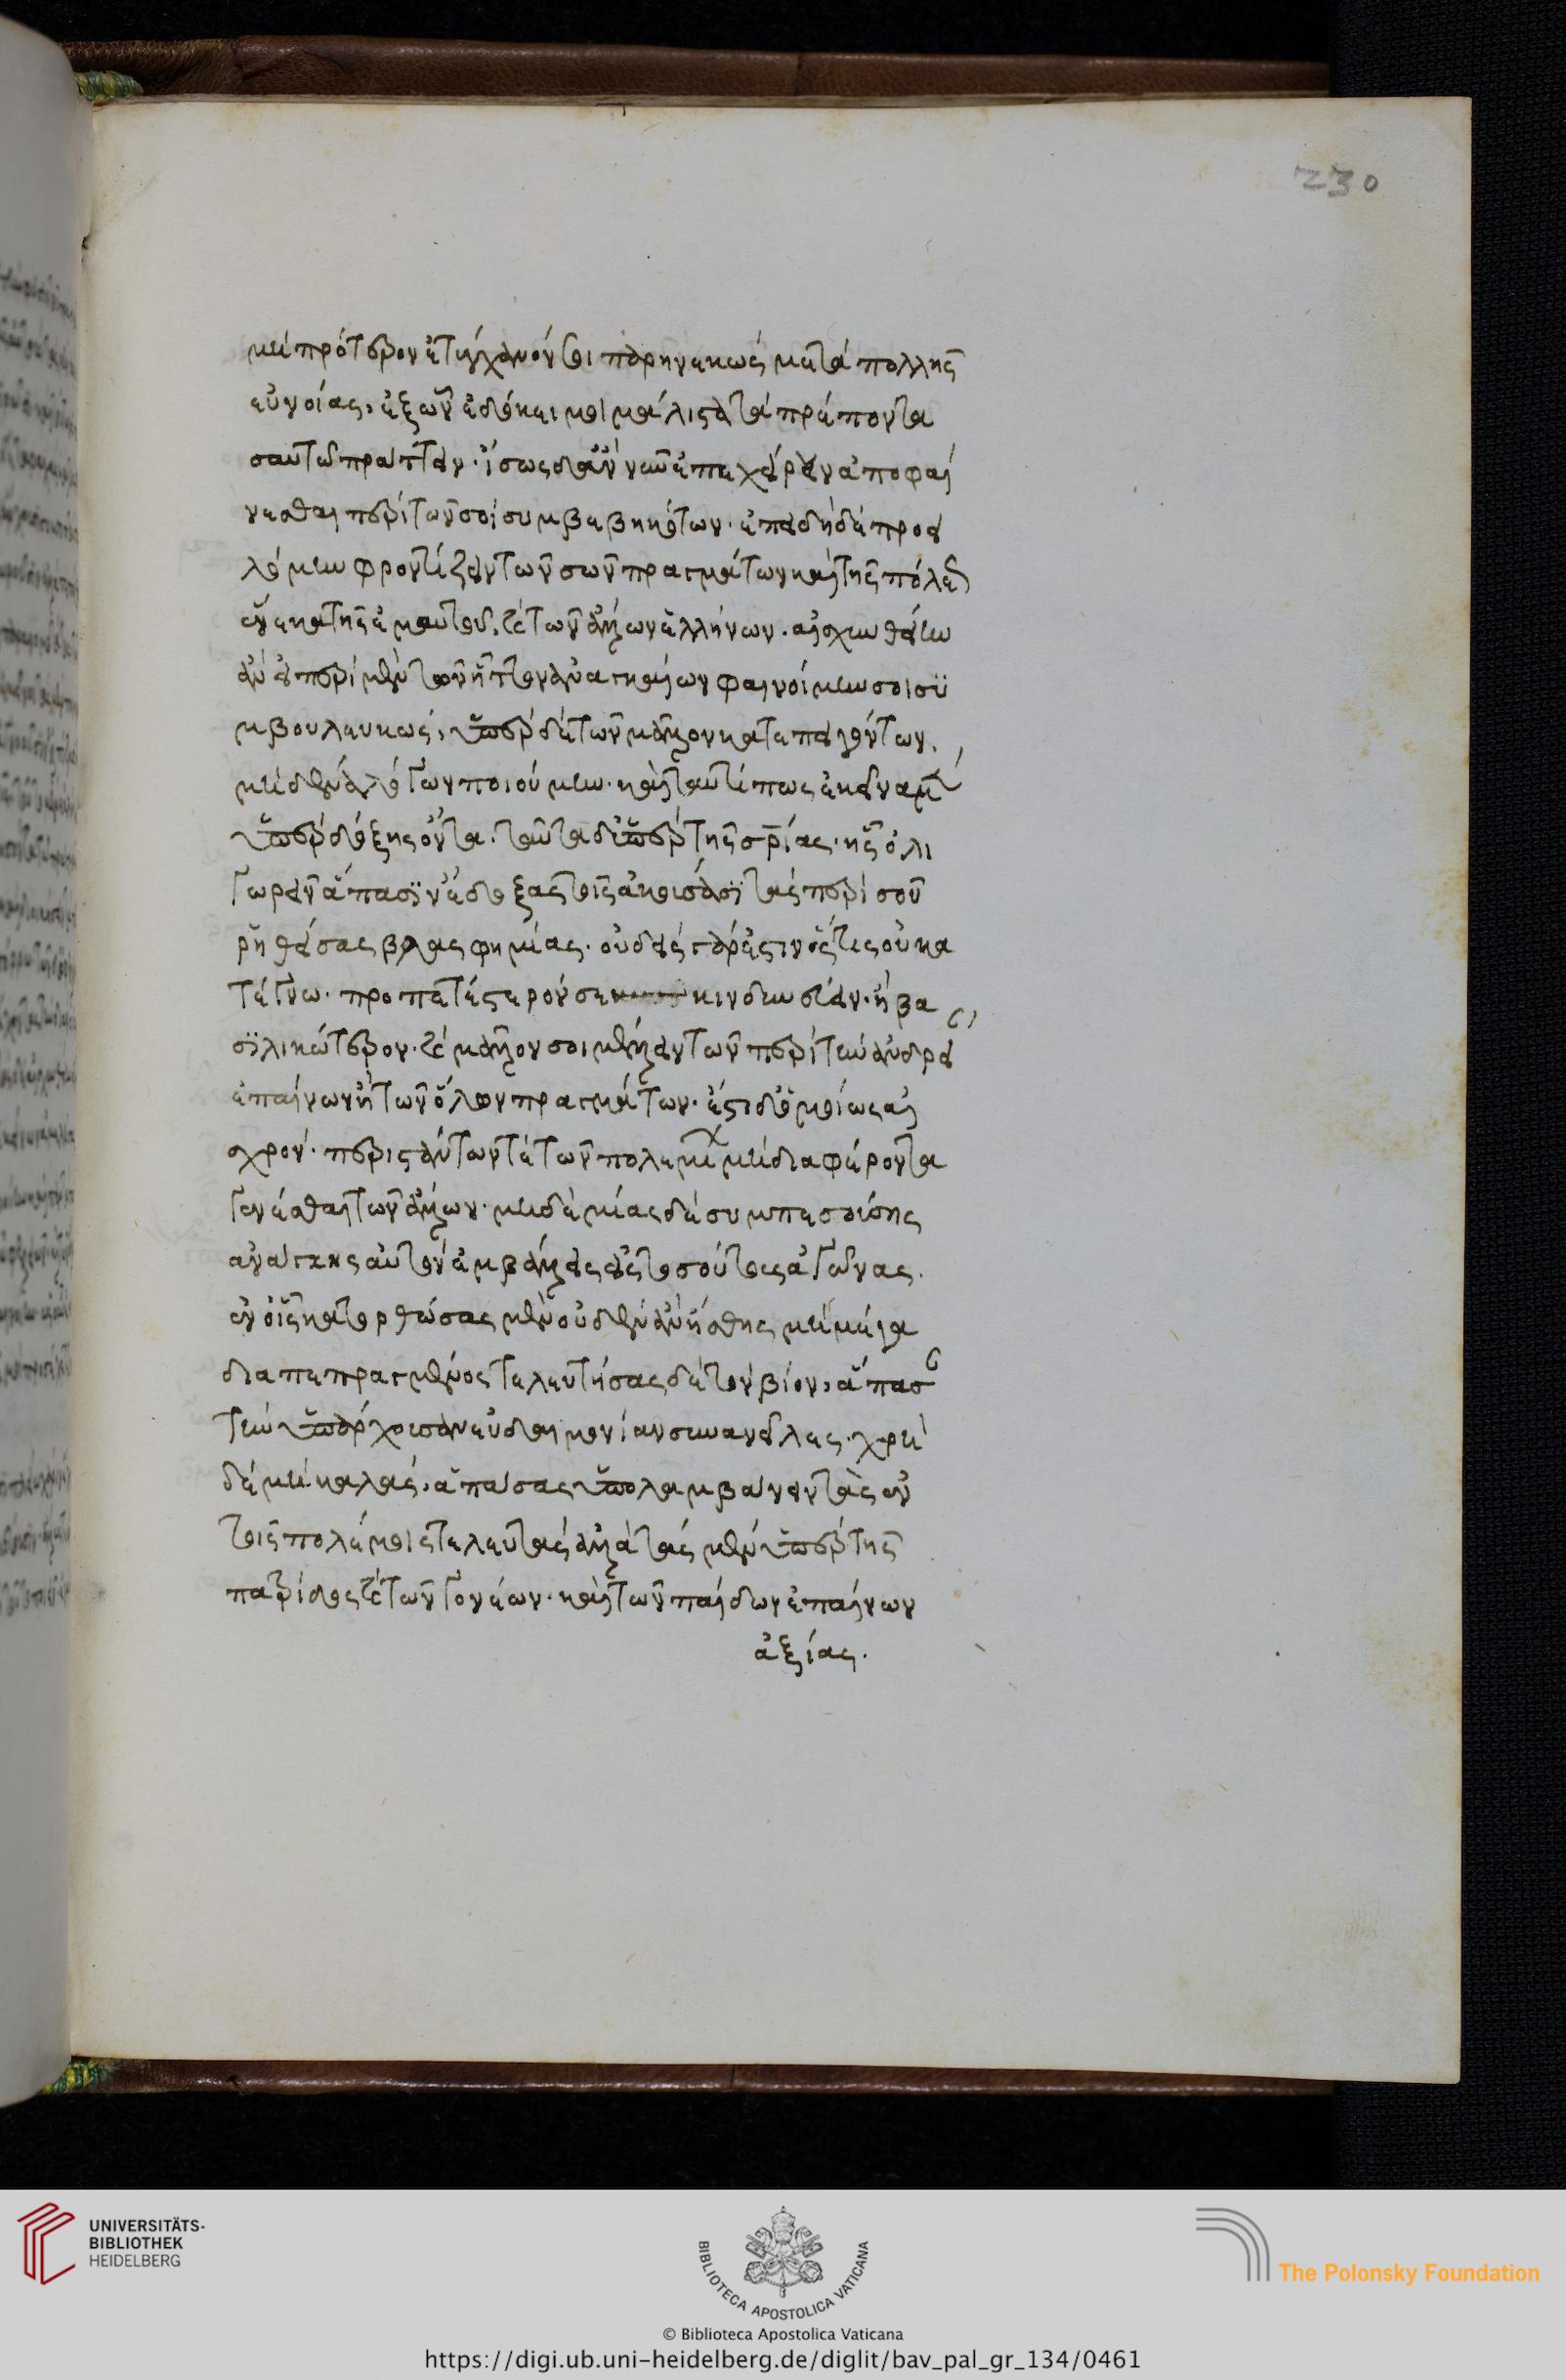 μὴ πρότερον ἐτύγχανόν σοι παρηνεκὼς μετὰ πολλῆς
εὐνοίας, ἐξ ὧν ἐδόκει μοι μάλιστα τὰ πρέποντα
σαυτῷ πράττειν. ἴσως δ' ἂν νῦν ἐπεχείρειν ἀποφαί
νεσθαι περὶ τῶν σοὶ συμβεβηκότων. ἐπειδὴ δὲ προει
λόμην φροντίζειν τῶν σῶν πραγμάτων καὶ τῆς πόλεως
ἕνεκα τῆς ἐμαυτοῦ, καὶ τῶν ἄλλων ἑλλήνων. αἰσχυνθείην
ἂν εἰ περὶ μὲν τῶν ἧττον ἀναγκαίων φαινοίμην σοι συ
μβουλευκώς, ὑπὲρ δὲ τῶν μᾶλλον κατεπειγόντων,
μηδένα λόγων ποιούμην. καὶ ταῦτ' εἰ πως ἐκεῖνα μὲν
ὑπὲρ δόξης ὄντα. ταῦτα δ' ὑπὲρ τῆς σρίας. ἧς ὀλι
γωρεῖν ἅπασιν ἔδοξας τοῖς ἀκούσασι τὰς περὶ σοῦ
ῥηθείσας βλασφημίας. οὐδεὶς γὰρ ἔστιν ὅστις οὐ κα
τέγνω. προπετέστερόν σε κινδυνεύειν. ἢ βα
σιλικώτερον. καὶ μᾶλλόν σοι μέλλειν τῶν περὶ τὴν ἀνδρεί
ἐπαίνων ἢ τῶν ὅλων πραγμάτων. ἔστι δ' ὁμοίως αἰ
σχρόν. περιστάντων τὲ τῶν πολεμίων μὴ διαφέροντα
γενέσθαι τῶν ἄλλων. μηδὲ μίας δὲ συμπεσούσης
ἀνάγκης αὐτὸν ἐμβάλλεις εἰς τοσούτους ἀγῶνας.
ἐν οἷς κατορθώσας μὲν οὐδὲν ἂν ἦσθης μὴ μέγα
διαπεπραγμένος τελευτήσας δὲ τὸν βίον, ἅπασαν
τὴν ὑπάρχουσαν εὐδαιμονίαν συνανεῖλες. χρὴ
δὲ μὴ καλὰς, ἁπάσας ὑπολαμβάνειν τὰς ἐν
τοῖς πολέμοις τελευτὰς ἀλλὰ τὰς μὲν ὑπὲρ τῆς
πατρίδος καὶ τῶν γονέων. καὶ τῶν παίδων ἐπαίνων
ἀξίας.
230
UNIVERSITÄTS-
BIBLIOTHEK
HEIDELBERG
BIBLIOTECA APOSTOLICA VATICANA
The Polonsky Foundation
© Biblioteca Apostolica Vaticana
https://digi.ub.uni-heidelberg.de/diglit/bav_pal_gr_134/0461